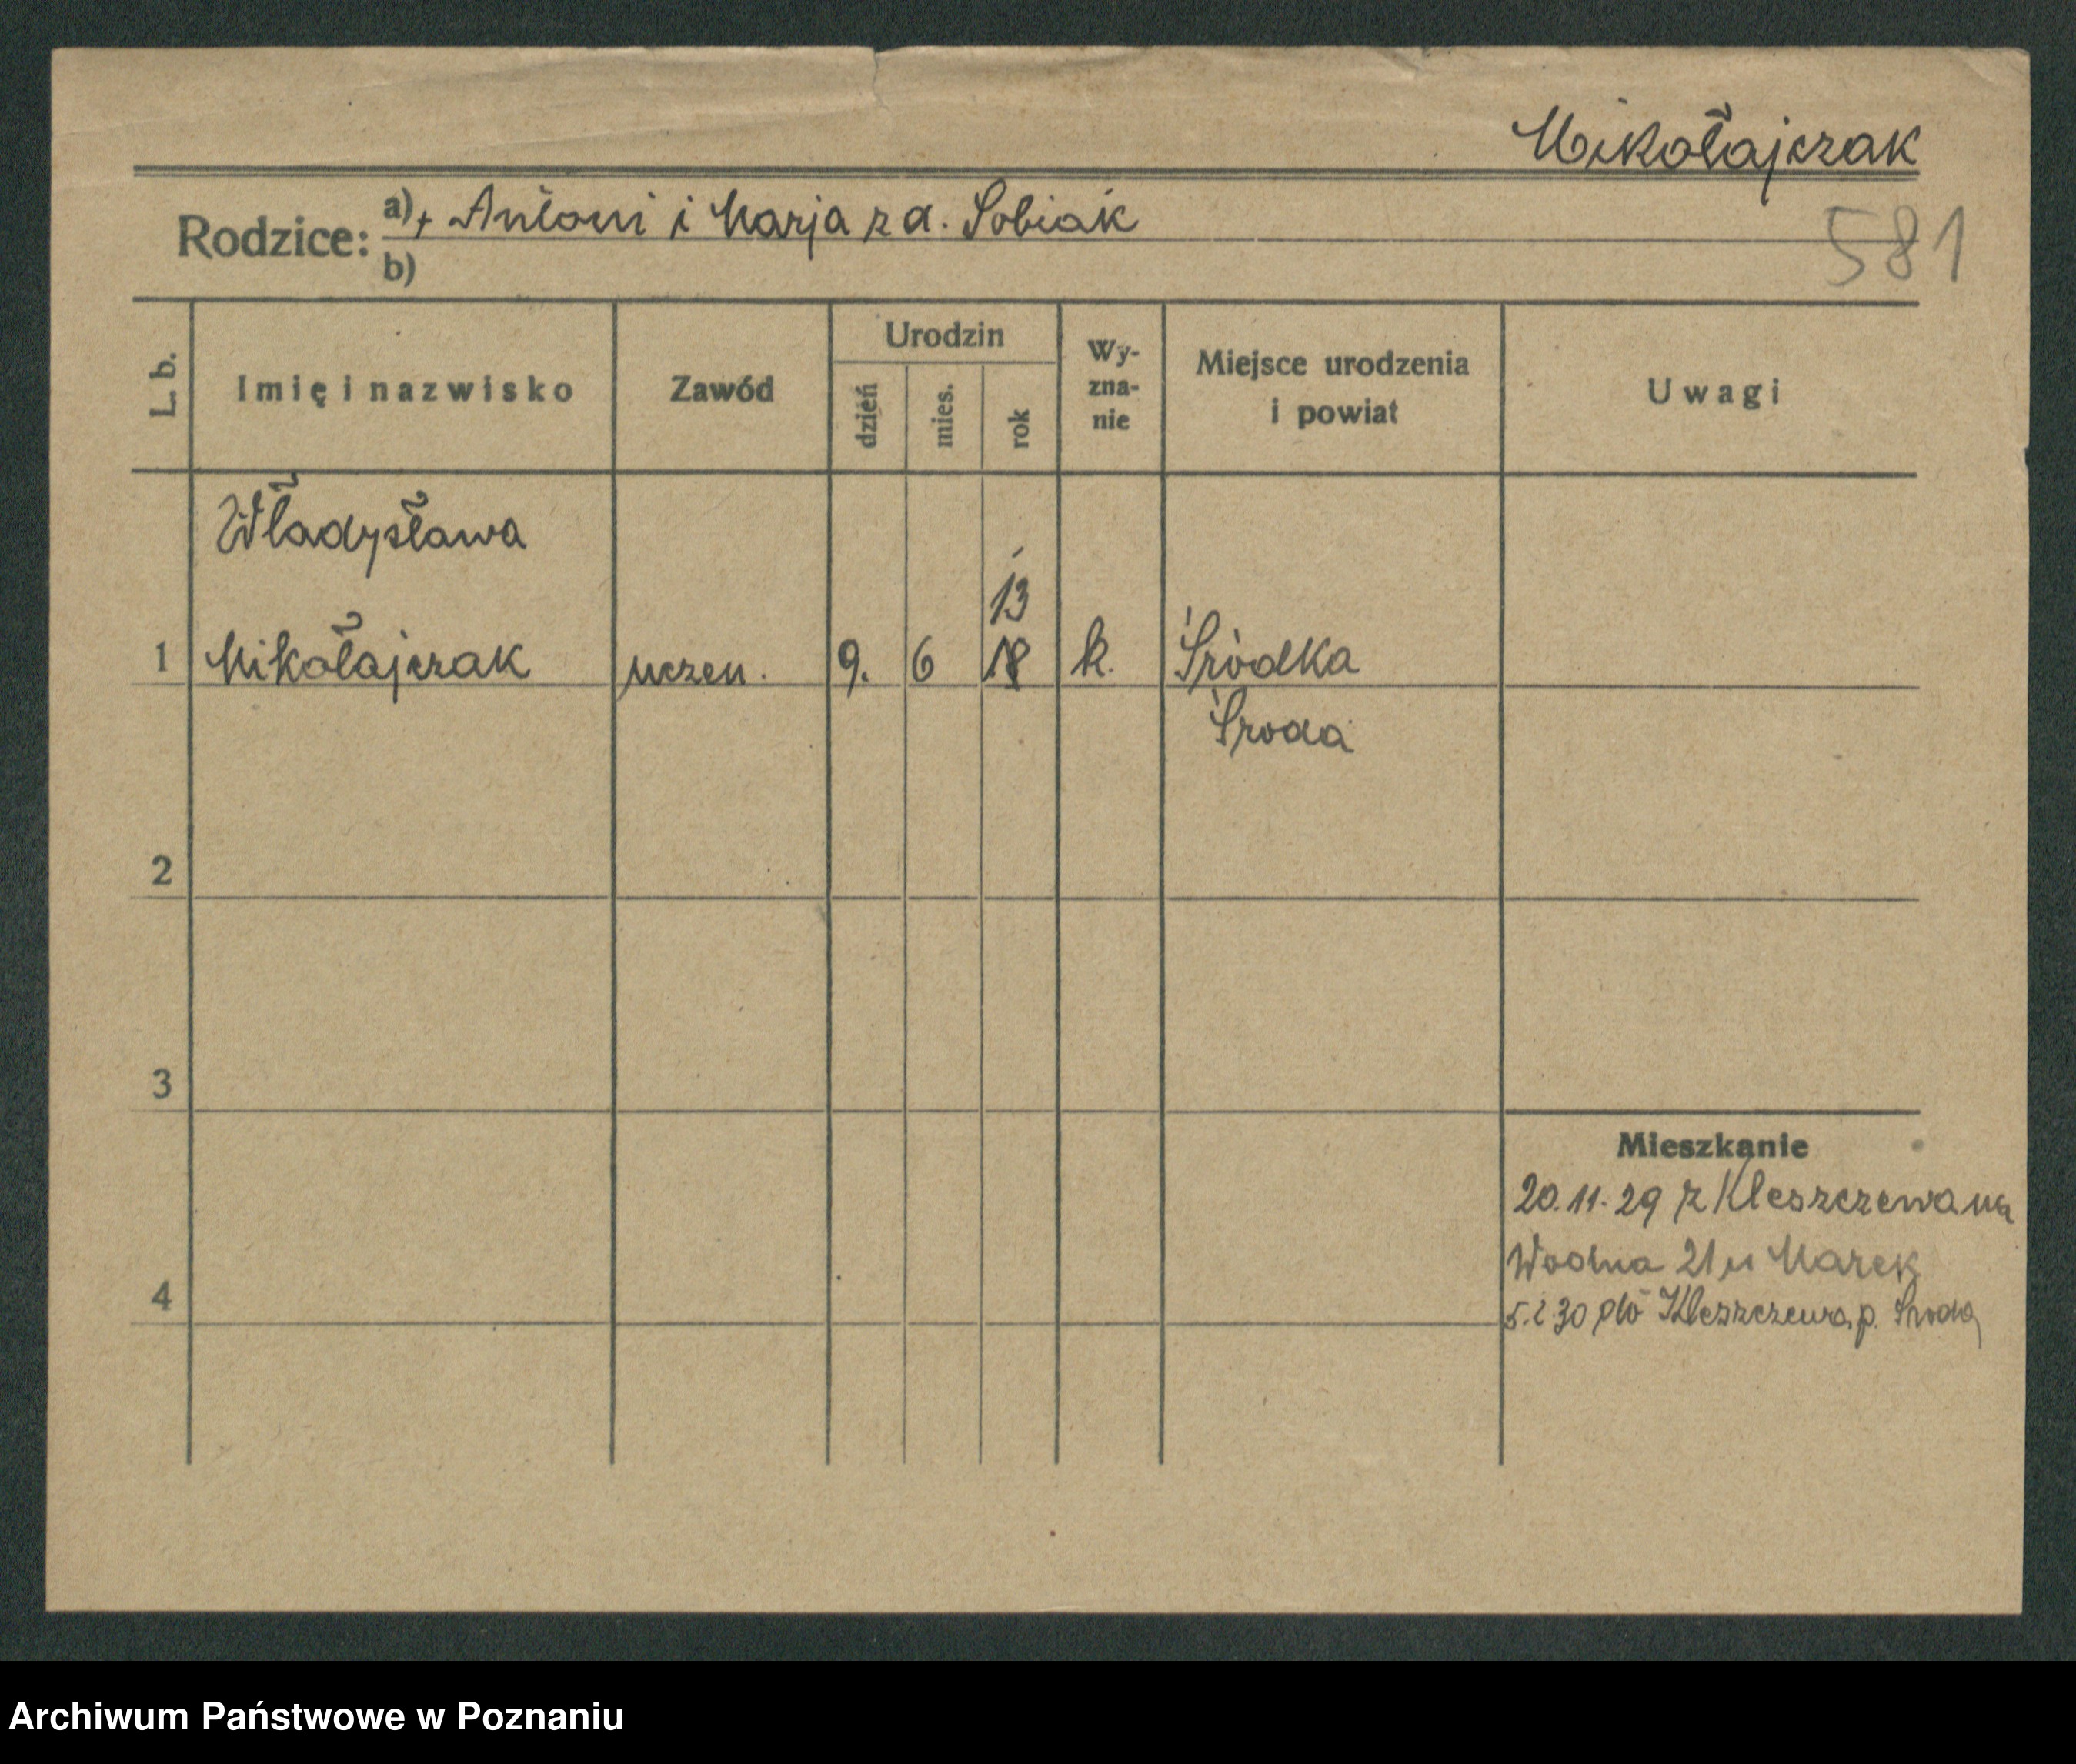 Mikołajczak
Rodzice: a) + Antoni i Marja z d. Sobiak
581
b)
L. b. Imię i nazwisko Zawód Urodzin dzień mies. rok Wy-zna-nie Miejsce urodzenia i powiat Uwagi
Władysława
13
1 Mikołajczak uczen. 9. 6 18 k. Śródka
Środa
2
3
Mieszkanie
20.11.29 z Kleszczewa na
Wodna 21 u Marek
4
5.2.30 do Kleszczewa, p. Środa
Archiwum Państwowe w Poznaniu